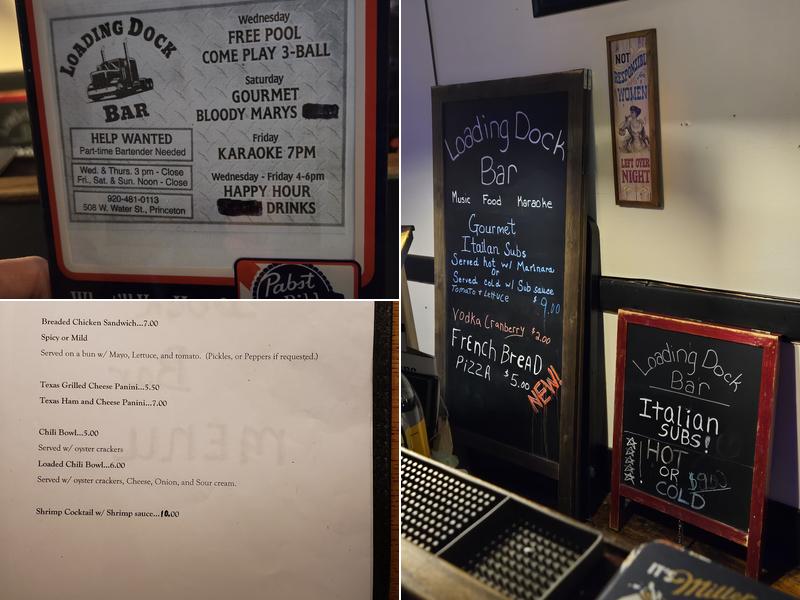 LOADING DOCK
BAR
HELP WANTED
Part-time Bartender Needed
Wed. & Thurs. 3 pm - Close
Fri., Sat. & Sun. Noon - Close
920-481-0113
508 W. Water St., Princeton
Wednesday
FREE POOL
COME PLAY 3-BALL
Saturday
GOURMET
BLOODY MARYS
Friday
KARAOKE 7PM
Wednesday - Friday 4-6pm
HAPPY HOUR
DRINKS
Pabst
Breaded Chicken Sandwich...7.00
Spicy or Mild
Served on a bun w/ Mayo, Lettuce, and tomato. (Pickles, or Peppers if requested.)
Texas Grilled Cheese Panini...5.50
Texas Ham and Cheese Panini...7.00
Chili Bowl...5.00
Served w/ oyster crackers
Loaded Chili Bowl...6.00
Served w/ oyster crackers, Cheese, Onion, and Sour cream.
Shrimp Cocktail w/ Shrimp sauce...10.00
menu
Loading Dock
Bar
Music Food Karaoke
Gourmet
Italian Subs
Served hot w/ Marinara
or
Served cold w/ Sub sauce
Tomato + Lettuce
$9.00
Vodka Cranberry $2.00
French BreAD
PizzA $5.00
NEW!
NOT
RESPONSIBLE
WOMEN
LEFT OVER
NIGHT
Loading Dock
Bar
Italian
SUBS!
HOT
OR $9.00
COLD
IT'S Miller